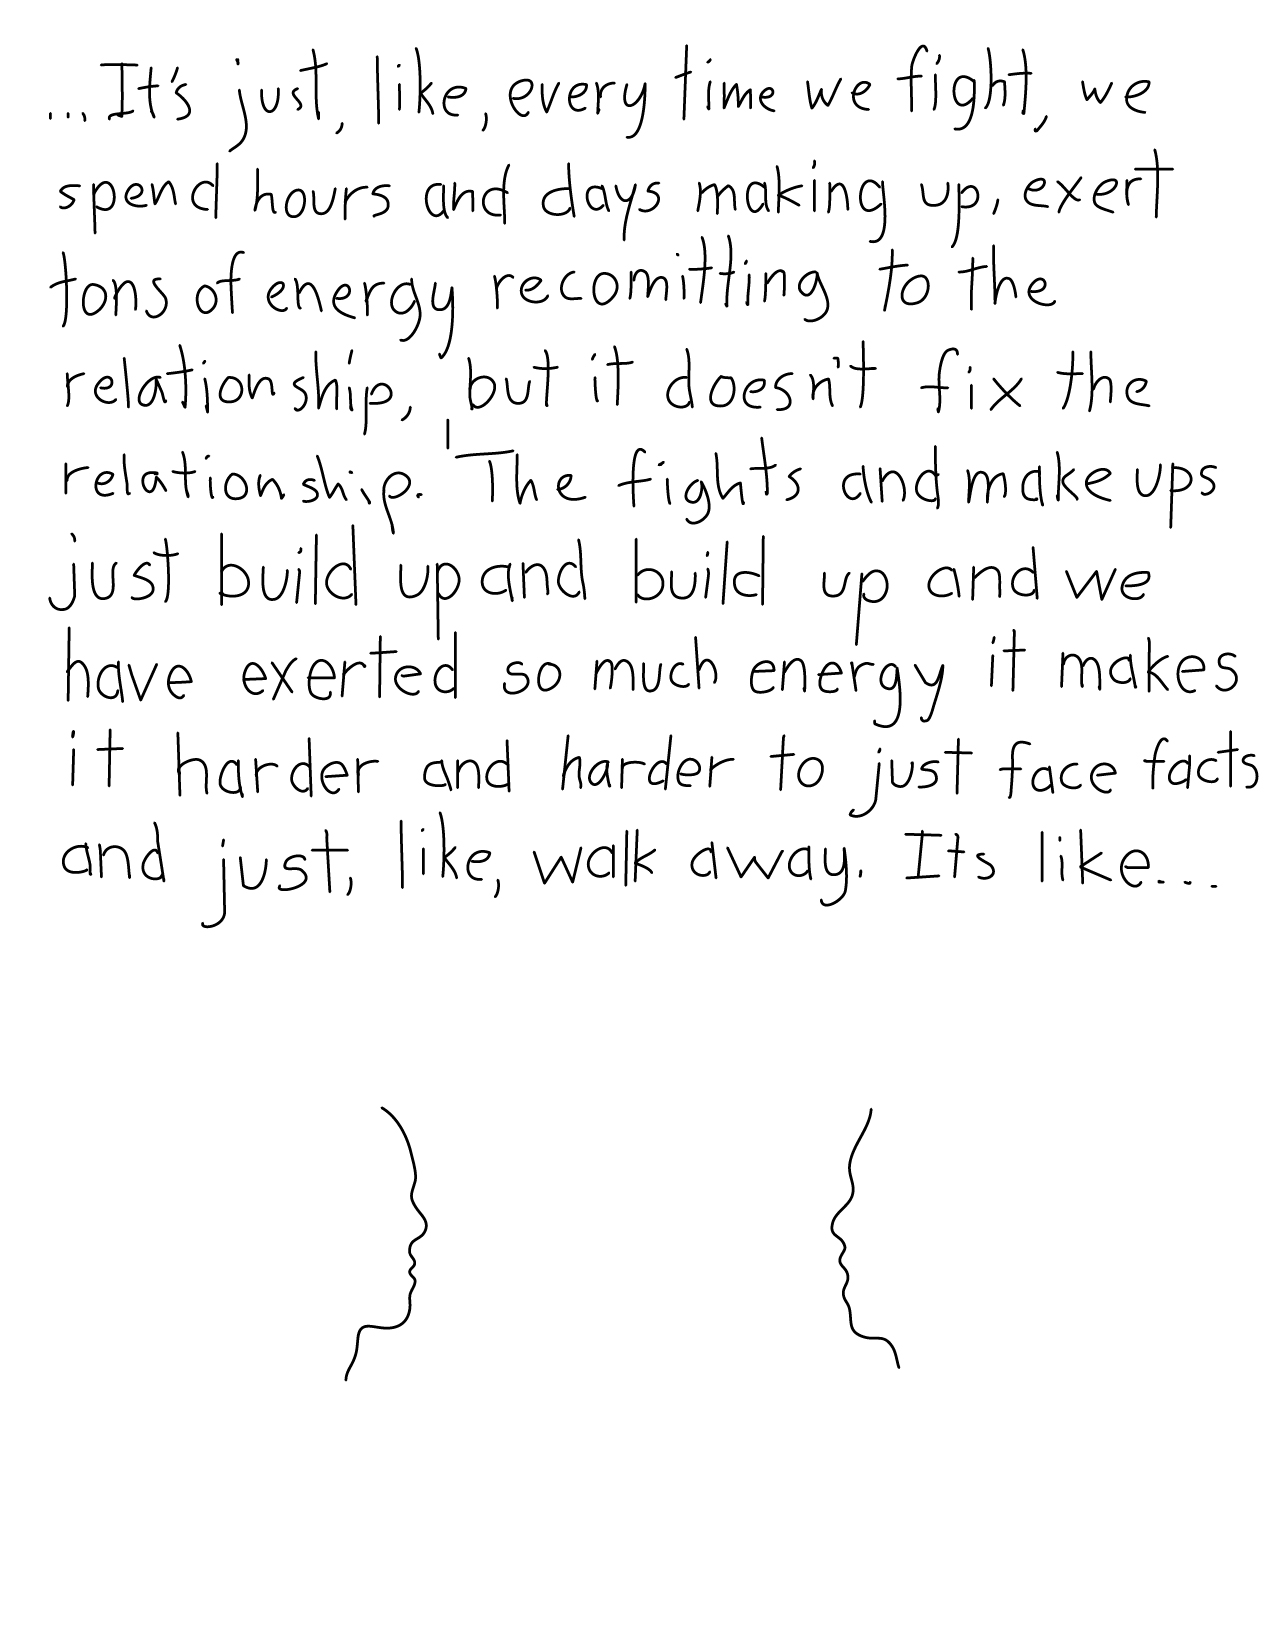 ...It's just, like, every time we fight, we
spend hours and days making up, exert
tons of energy recomitting to the
relationship, but it doesn't fix the
relationship. The fights and make ups
just build up and build up and we
have exerted so much energy it makes
it harder and harder to just face facts
and just, like, walk away. Its like...